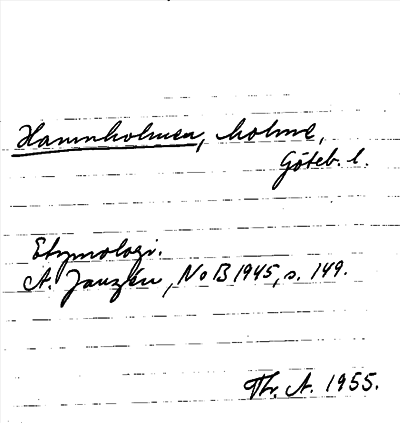 Hamnholmen, holme,
Göteb. l.
Etymologi.
A. Janzén, NoB 1945, s. 149.
Thr. A. 1955.